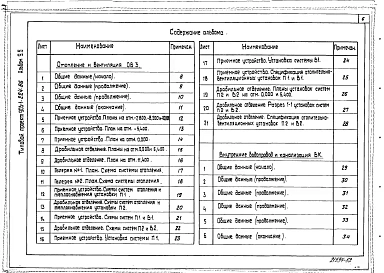 6
Содержание альбома.
Лист Наименования Примечан.
Отопление и Вентиляция ОВ 3
1 Общие данные (начало). 8
2 Общие данные (продолжение). 9
3 Общие данные (продолжение) 10
4 Общие данные (окончание) 11
5 Приемное устройство. Планы на отм.
6 Приемное устройство. План на отм. -5,400. 13
7 Приемное устройство. План на отм. 0,000. 14
8 Дробильное отделение. Планы на отм. 0,000 и 5,400. 15
9 Дробильное отделение. План на отм. 8,400. 16
10 Галерея №1. План. Схемы системы отопления. 17
11 Галерея №2. План. Схема системы отопления. 18
12 Приемное устройство. Схемы систем отопления и теплоснабжения установки П1. 19
13 Дробильное отделение. Схемы систем отопления и теплоснабжения установки П2 20
14 Приемное устройство. Схемы систем П1 и В1. 21
15 Дробильное отделение. Схемы систем П2 и В2. 22
16 Приемное устройство. Установка системы П1. 23
Лист Наименование Примечан.
17 Приемное устройство. Установка системы В1. 24
18 Приемное устройство. Спецификация отопительно-вентиляционных установок П1 и В1. 25
19 Дробильное отделение. Планы установок систем П2 и В2 на отм. 0,000 и 5,400. 26
20 Дробильное отделение. Разрез 1-1 установок систем П2 и В2. 27
21 Дробильное отделение. Спецификация отопительно-вентиляционных установок П2 и В2. 28
Внутренние водопровод и канализация ВК.
1 Общие данные (начало). 29
2 Общие данные (продолжение). 30
3 Общие данные (продолжение). 31
4 Общие данные (продолжение). 32
5 Общие данные (продолжение) 33
6 Общие данные (окончание). 34